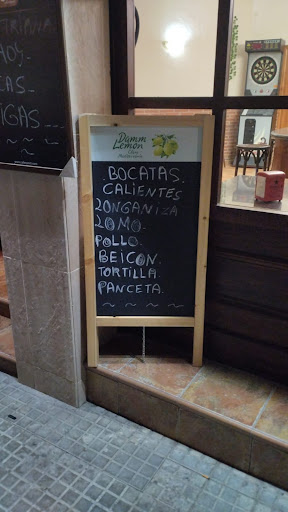 TRIANA
HOY
CAS
IGAS
Damm
Lemon
.BOCATAS.
CALIENTES
LONGANIZA
LOMO.
POLLO.
BEICON.
TORTILLA.
PANCETA.